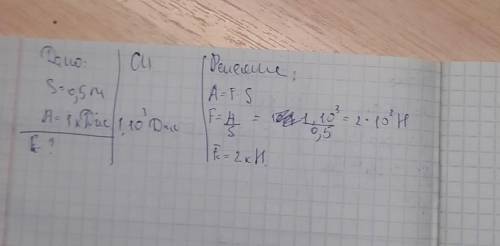 Дано:
S=0,5м
A=1кДж
F-?
СИ
1·10³ Дж
Решение:
A=F·S
F=A/S = 1·10³/0,5 = 2·10³ Н
F=2кН